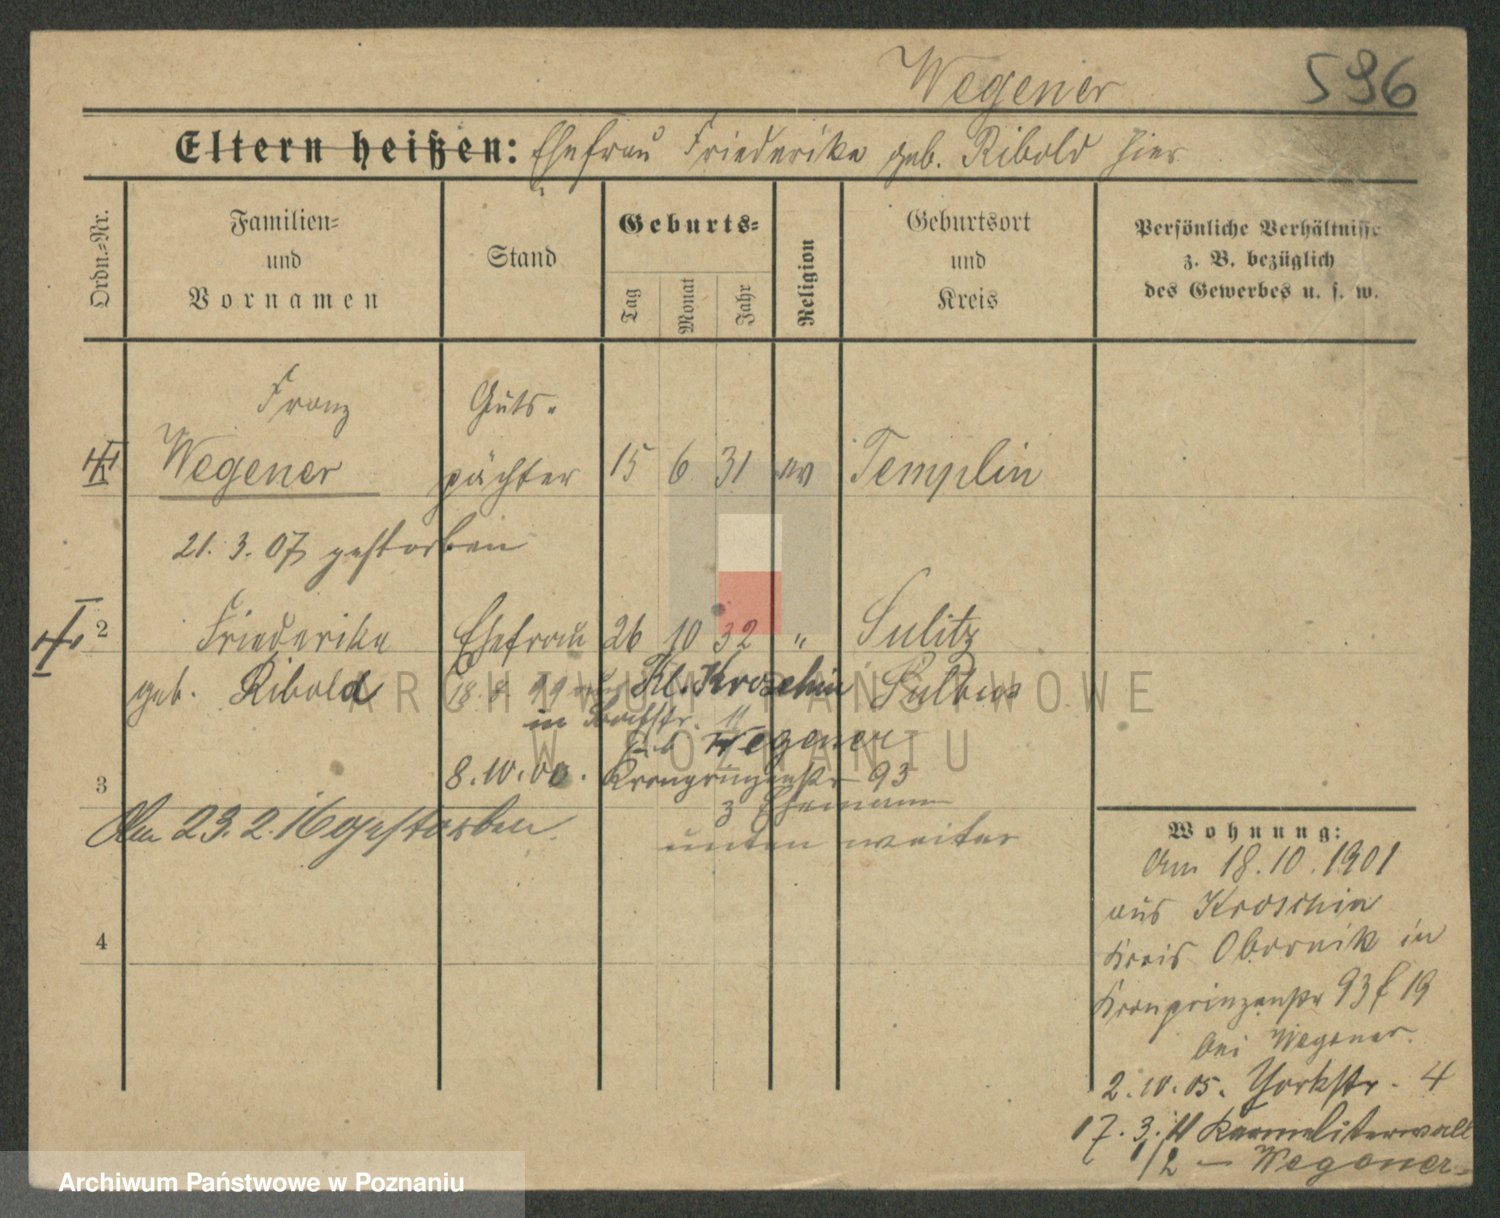 Wegener
596
Eltern heißen: Ehefrau Friederike geb. Ribold hier
Ordn.-Nr.
Familien-
und
Vornamen
Stand
Geburts-
Tag
Monat
Jahr
Religion
Geburtsort
und
Kreis
Persönliche Verhältnisse
z. B. bezüglich
des Gewerbes u. s. w.
Franz Guts-
Wegener pächter 15 6 31 ev Templin
21. 3. 07 gestorben
2 Friederike Ehefrau 26 10 32 " Sulitz
geb. Ribold 18. 8. 99 Kl. Kroschin
in 11
Wegener
3 8. 10. 00. Kronprinzenstr 93
z Ehemann
Am 23. 2. 16 gestorben.
unten weiter
4
Wohnung:
Am 18. 10. 1901
aus Kroschin
Kreis Obornik in
Kronprinzenstr 93 f 19
bei Wegener.
2. 10. 05. Yorkstr. 4
17. 3. 11 Karmeliterwall
1/2 – Wegener
ARCHIWUM PAŃSTWOWE
W POZNANIU
Archiwum Państwowe w Poznaniu